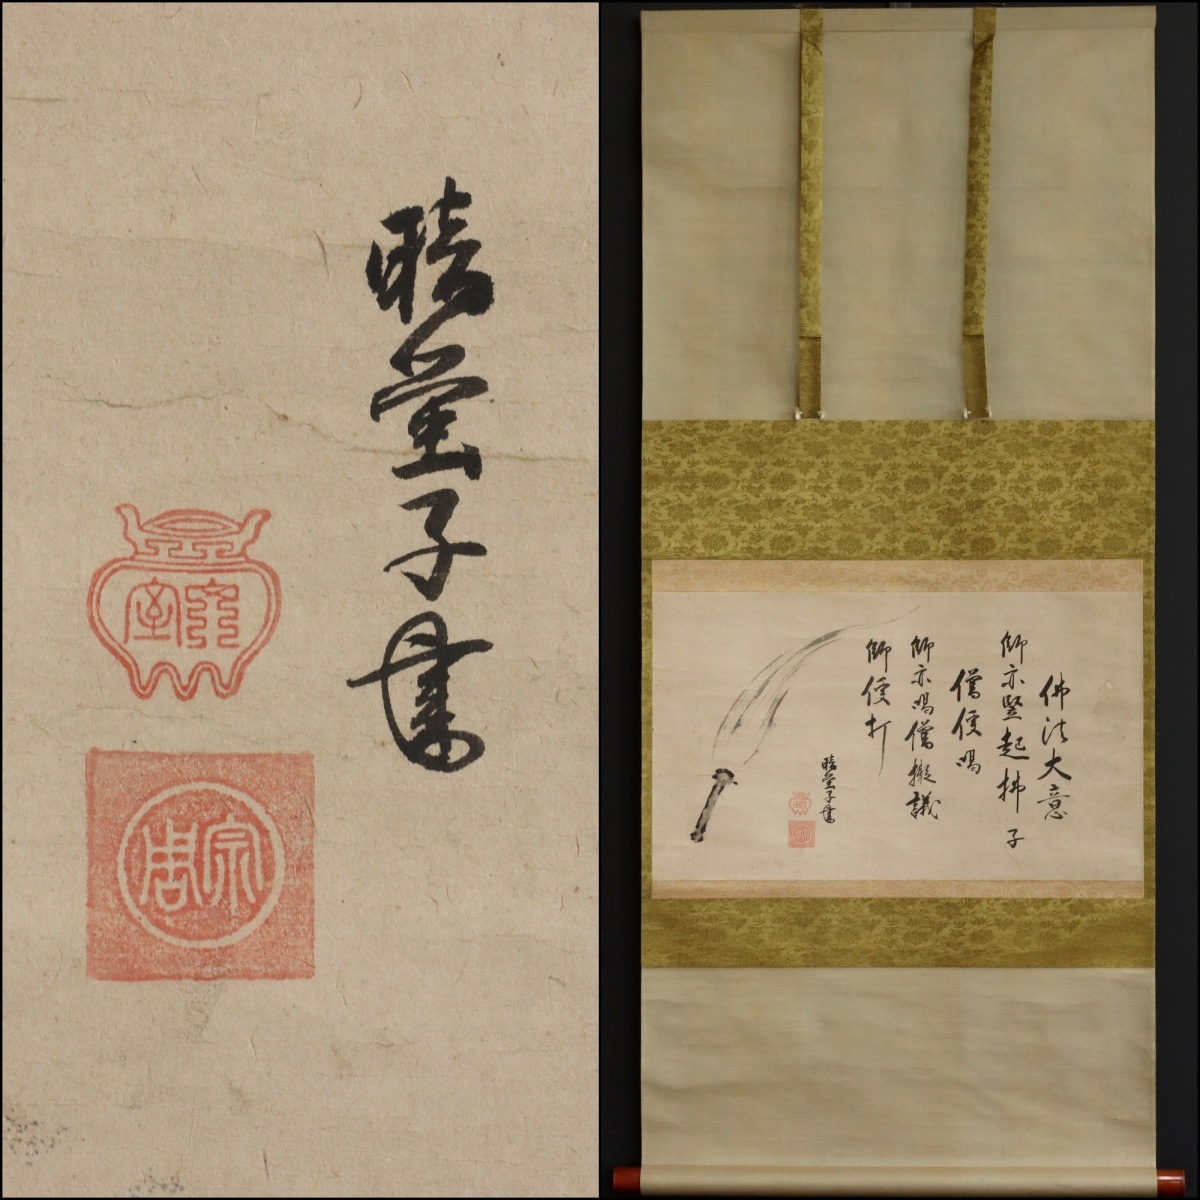 佛法大意
師亦竪起拂子
僧便喝
師亦喝僧擬議
師便打
堂子書
宗
堂子書
宗